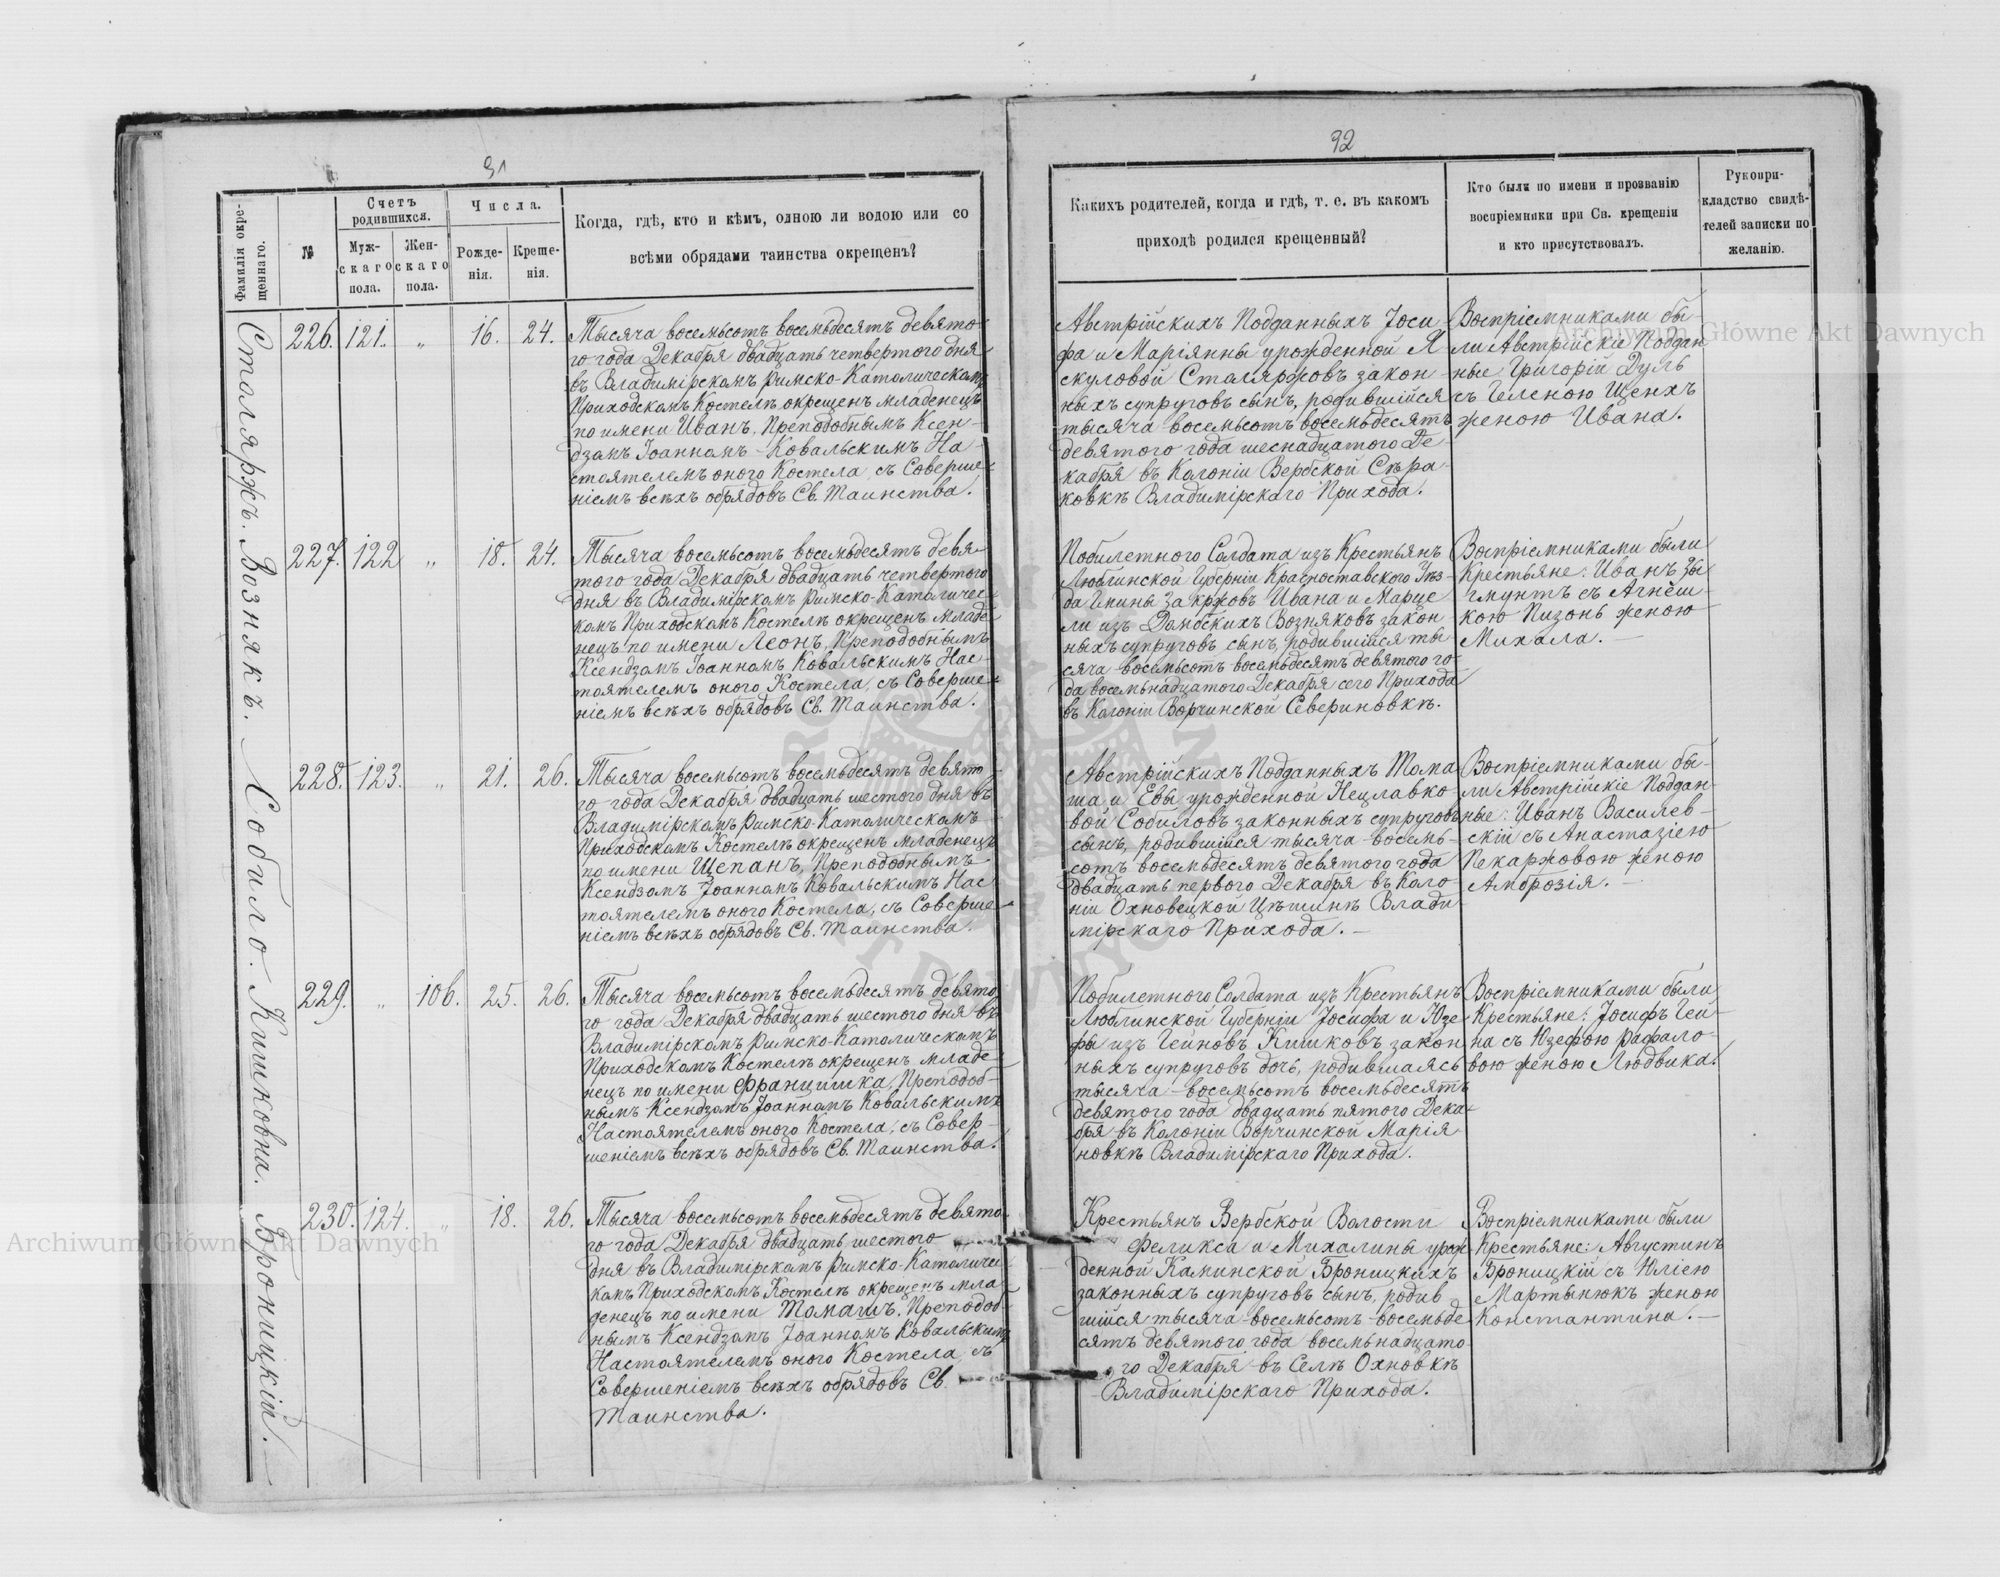 91
Фамилія окре-
щеннаго.
№
Счетъ
родившихся.
Муж-
скаго
пола.
Жен-
скаго
пола.
Числа.
Рожде-
нія.
Креще-
нія.
Когда, гдѣ, кто и кѣмъ, одною ли водою или со
всѣми обрядами таинства окрещенъ?
Столяржъ. Вознякъ. Собило. Кишковна. Броницкій.
226. 121. „ 16. 24.
Тысяча восемьсотъ восемьдесятъ девято-
го года Декабря двадцать четвертого дня
въ Владимірскомъ Римско-Католическомъ
Приходскомъ Костелѣ окрещенъ младенецъ
по имени Иванъ, Преподобнымъ Ксен-
дзомъ Іоанномъ Ковальскимъ На-
стоятелемъ оного Костела, съ Соверше-
ніемъ всѣхъ обрядовъ Св. Таинства.
227. 122 „ 18. 24.
Тысяча восемьсотъ восемьдесятъ девя-
того года Декабря двадцать четвертого
дня въ Владимірскомъ Римско-Католичес-
комъ Приходскомъ Костелѣ окрещенъ младе-
нецъ по имени Леонъ, Преподобнымъ
Ксендзомъ Іоанномъ Ковальскимъ Нас-
тоятелемъ оного Костела, съ Соверше-
ніемъ всѣхъ обрядовъ Св. Таинства.
228. 123. „ 21. 26.
Тысяча восемьсотъ восемьдесятъ девято-
го года Декабря двадцать шестого дня въ
Владимірскомъ Римско-Католическомъ
Приходскомъ Костелѣ окрещенъ младенецъ
по имени Щепанъ, Преподобнымъ
Ксендзомъ Іоанномъ Ковальскимъ Нас-
тоятелемъ оного Костела, съ Соверше-
ніемъ всѣхъ обрядовъ Св. Таинства.
229. „ 106. 25. 26.
Тысяча восемьсотъ восемьдесятъ девято-
го года Декабря двадцать шестого дня въ
Владимірскомъ Римско-Католическомъ
Приходскомъ Костелѣ окрещенъ младе-
нецъ по имени Францишка, Преподоб-
нымъ Ксендзомъ Іоанномъ Ковальскимъ
Настоятелемъ оного Костела, съ Совер-
шеніемъ всѣхъ обрядовъ Св. Таинства.
230. 124. „ 18. 26.
Тысяча восемьсотъ восемьдесятъ девято-
го года Декабря двадцать шестого
дня въ Владимірскомъ Римско-Католичес-
комъ Приходскомъ Костелѣ окрещенъ мла-
денецъ по имени Томашъ, Преподоб-
нымъ Ксендзомъ Іоанномъ Ковальскимъ
Настоятелемъ оного Костела, съ
Совершеніемъ всѣхъ обрядовъ Св.
Таинства.
92
Какихъ родителей, когда и гдѣ, т. е. въ какомъ
приходѣ родился крещенный?
Кто были по имени и прозванію
воспріемники при Св. крещеніи
и кто присутствовалъ.
Рукопри-
кладство свидѣ-
телей записки по
желанію.
Австрійскихъ Подданныхъ Іоси-
фа и Маріянны урожденной Я
скуловой Столяржовъ закон-
ныхъ супруговъ сынъ, родившійся
тысяча восемьсотъ восемьдесятъ
девятого года шеснадцатого Де-
кабря въ Колоніи Вербской Сѣра-
ковкѣ Владимірскаго Прихода.
Воспріемниками бы-
ли Австрійскіе Поддан-
ные Григорій Дуль
съ Геленою Щенхъ
женою Ивана.
Побилетного Солдата изъ Крестьянъ
Люблинской Губерніи Красноставского Уѣз-
да Гмины Закржовъ Ивана и Марце
ли изъ Домбскихъ Возняковъ закон-
ныхъ супруговъ сынъ, родившійся ты-
сяча восемьсотъ восемьдесятъ девятого го-
да восемьнадцатого Декабря сего Прихода
въ Колоніи Ворчинской Севериновкѣ.
Воспріемниками были
Крестьяне: Иванъ Зы-
гмунтъ съ Агнѣш-
кою Пизонь женою
Михала.
Австрійскихъ Подданныхъ Тома-
ша и Евы урожденной Нецлавко-
вой Собиловъ законныхъ супруговъ
сынъ, родившійся тысяча восемь-
сотъ восемьдесятъ девятого года
двадцать первого Декабря въ Коло-
ніи Охновецкой Цѣшинѣ Влади-
мірскаго Прихода.
Воспріемниками бы-
ли Австрійскіе Поддан-
ные: Иванъ Василев-
скій съ Анастазіею
Пекаржовою женою
Амброзія.
Побилетного Солдата изъ Крестьянъ
Люблинской Губерніи Іосифа и Юзе-
фы изъ Гейновъ Кишковъ закон-
ныхъ супруговъ дочь, родившаясь
тысяча восемьсотъ восемьдесятъ
девятого года двадцать пятого Дека-
бря въ Колоніи Ворчинской Марія
новкѣ Владимірскаго Прихода.
Воспріемниками были
Крестьяне: Іосифъ Гей-
на съ Юзефою Рафало-
вою женою Людвика.
Крестьянъ Вербской Волости
Феликса и Михалины урож-
денной Каминской Броницкихъ
законныхъ супруговъ сынъ, родив
шійся тысяча восемьсотъ восемьде-
сятъ девятого года восемьнадцато-
го Декабря въ Селѣ Охновкѣ
Владимірскаго Прихода.
Воспріемниками были
Крестьяне: Августинъ
Броницкій съ Юліею
Мартынюкъ женою
Константина.
Archiwum Główne Akt Dawnych
Archiwum Główne Akt Dawnych